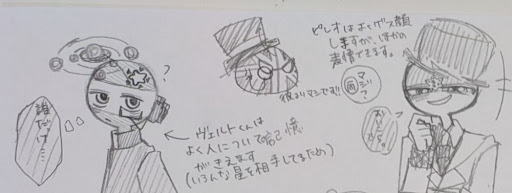 ピレオはよくゲス顔
しますが、ほかの
表情できます。
マジ?
彼よりマシです!!
?
誰だっけ…
← ヴェルトくんは
よく人について記憶
がきえます
(いろんな星を相手してるため)